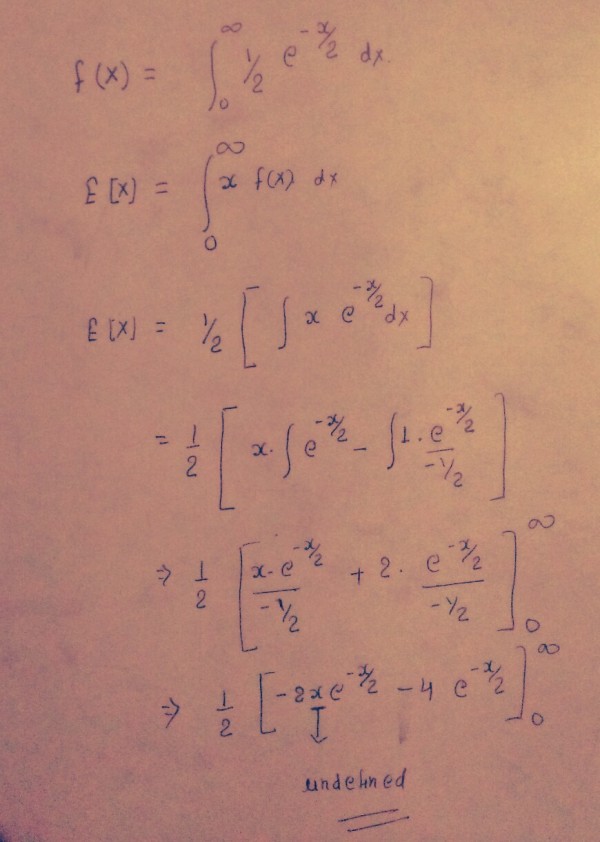 f(x) = ∫₀^∞ 1/2 e^(-x/2) dx.
E[x] = ∫₀^∞ x f(x) dx
E[x] = 1/2 [ ∫ x e^(-x/2) dx ]
= 1/2 [ x. ∫ e^(-x/2) - ∫ 1. e^(-x/2) / (-1/2) ]
⇒ 1/2 [ x. e^(-x/2) / (-1/2) + 2. e^(-x/2) / (-1/2) ]₀^∞
⇒ 1/2 [ -2x e^(-x/2) - 4 e^(-x/2) ]₀^∞
↓
undefined